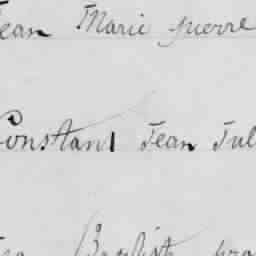 Jean Marie pierre
Constant Jean Jul
Baptist